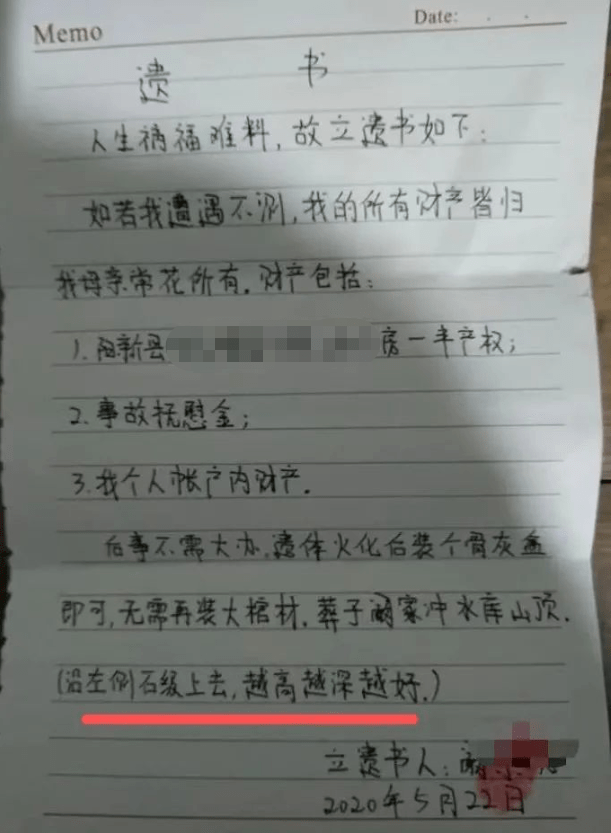 Memo
Date: . .
遗 书
人生祸福难料,故立遗书如下:
如若我遭遇不测,我的所有财产皆归
我母亲常花所有.财产包括:
1.阳新县 房一半产权;
2.事故抚慰金;
3.我个人帐户内财产.
后事不需大办,遗体火化后装个骨灰盒
即可,无需再装大棺材.葬于阚家冲水库山顶.
(沿左侧石级上去,越高越深越好.)
立遗书人:
2020年5月22日